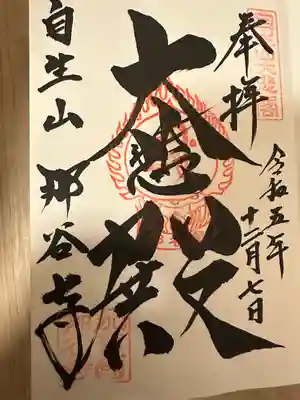 奉拝
令和五年
十二月七日
大悲殿
自生山
那谷寺